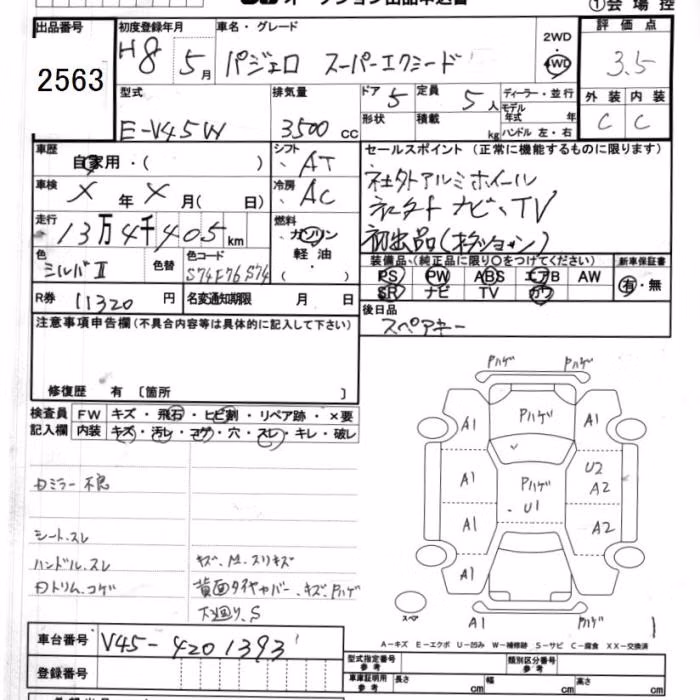 ①会場控
出品番号
2563
初度登録年月
H8 5月
車名・グレード
パジェロ スーパーエクシード
2WD
・
4WD
評価点
3.5
外装 内装
C C
型式
E-V45W
排気量
3500cc
ドア 5
形状
定員 5人
積載 kg
ディーラー・並行
モデル年式 年
ハンドル 左・右
車歴
自家用・( )
シフト
AT
車検
X年X月( 日)
冷房
AC
走行
13万4千405km
燃料
ガソリン
軽油
( )
色
シルバⅡ
色替
色コード
R券 11320円
名変通知期限 月 日
セールスポイント (正常に機能するものに限ります)
社外アルミホイール
社外ナビ、TV
初出品(オクション)
装備品、(純正品に限り○をつけてください)
PS PW ABS エアB AW
SR ナビ TV カワ
新車保証書
有・無
後日品
スペアキー
注意事項申告欄(不具合内容等は具体的に記入して下さい)
修復歴 有 〔箇所 〕
検査員
記入欄
FW キズ・飛石・ヒビ割・リペア跡・×要
内装 キズ・汚レ・コゲ・穴・スレ・キレ・破レ
Dミラー不良
シート、スレ
ハンドル、スレ
Dトリム、コゲ
キズ、M、スリキズ
背面タイヤカバー、キズ、Pハゲ
下廻り、S
Pハゲ Pハゲ
A1 Pハゲ A1
A1 Pハゲ U2 A2
U1
A1 A2
A1
スペア
A1 Pハゲ
A-キズ E-エクボ U-凹み W-補修跡 S-サビ C-腐食 XX-交換済
車台番号 V45-4201393
登録番号
型式指定番号
参考
類別区分番号
参考
車庫証明用
参考
長さ cm 幅 cm 高さ cm